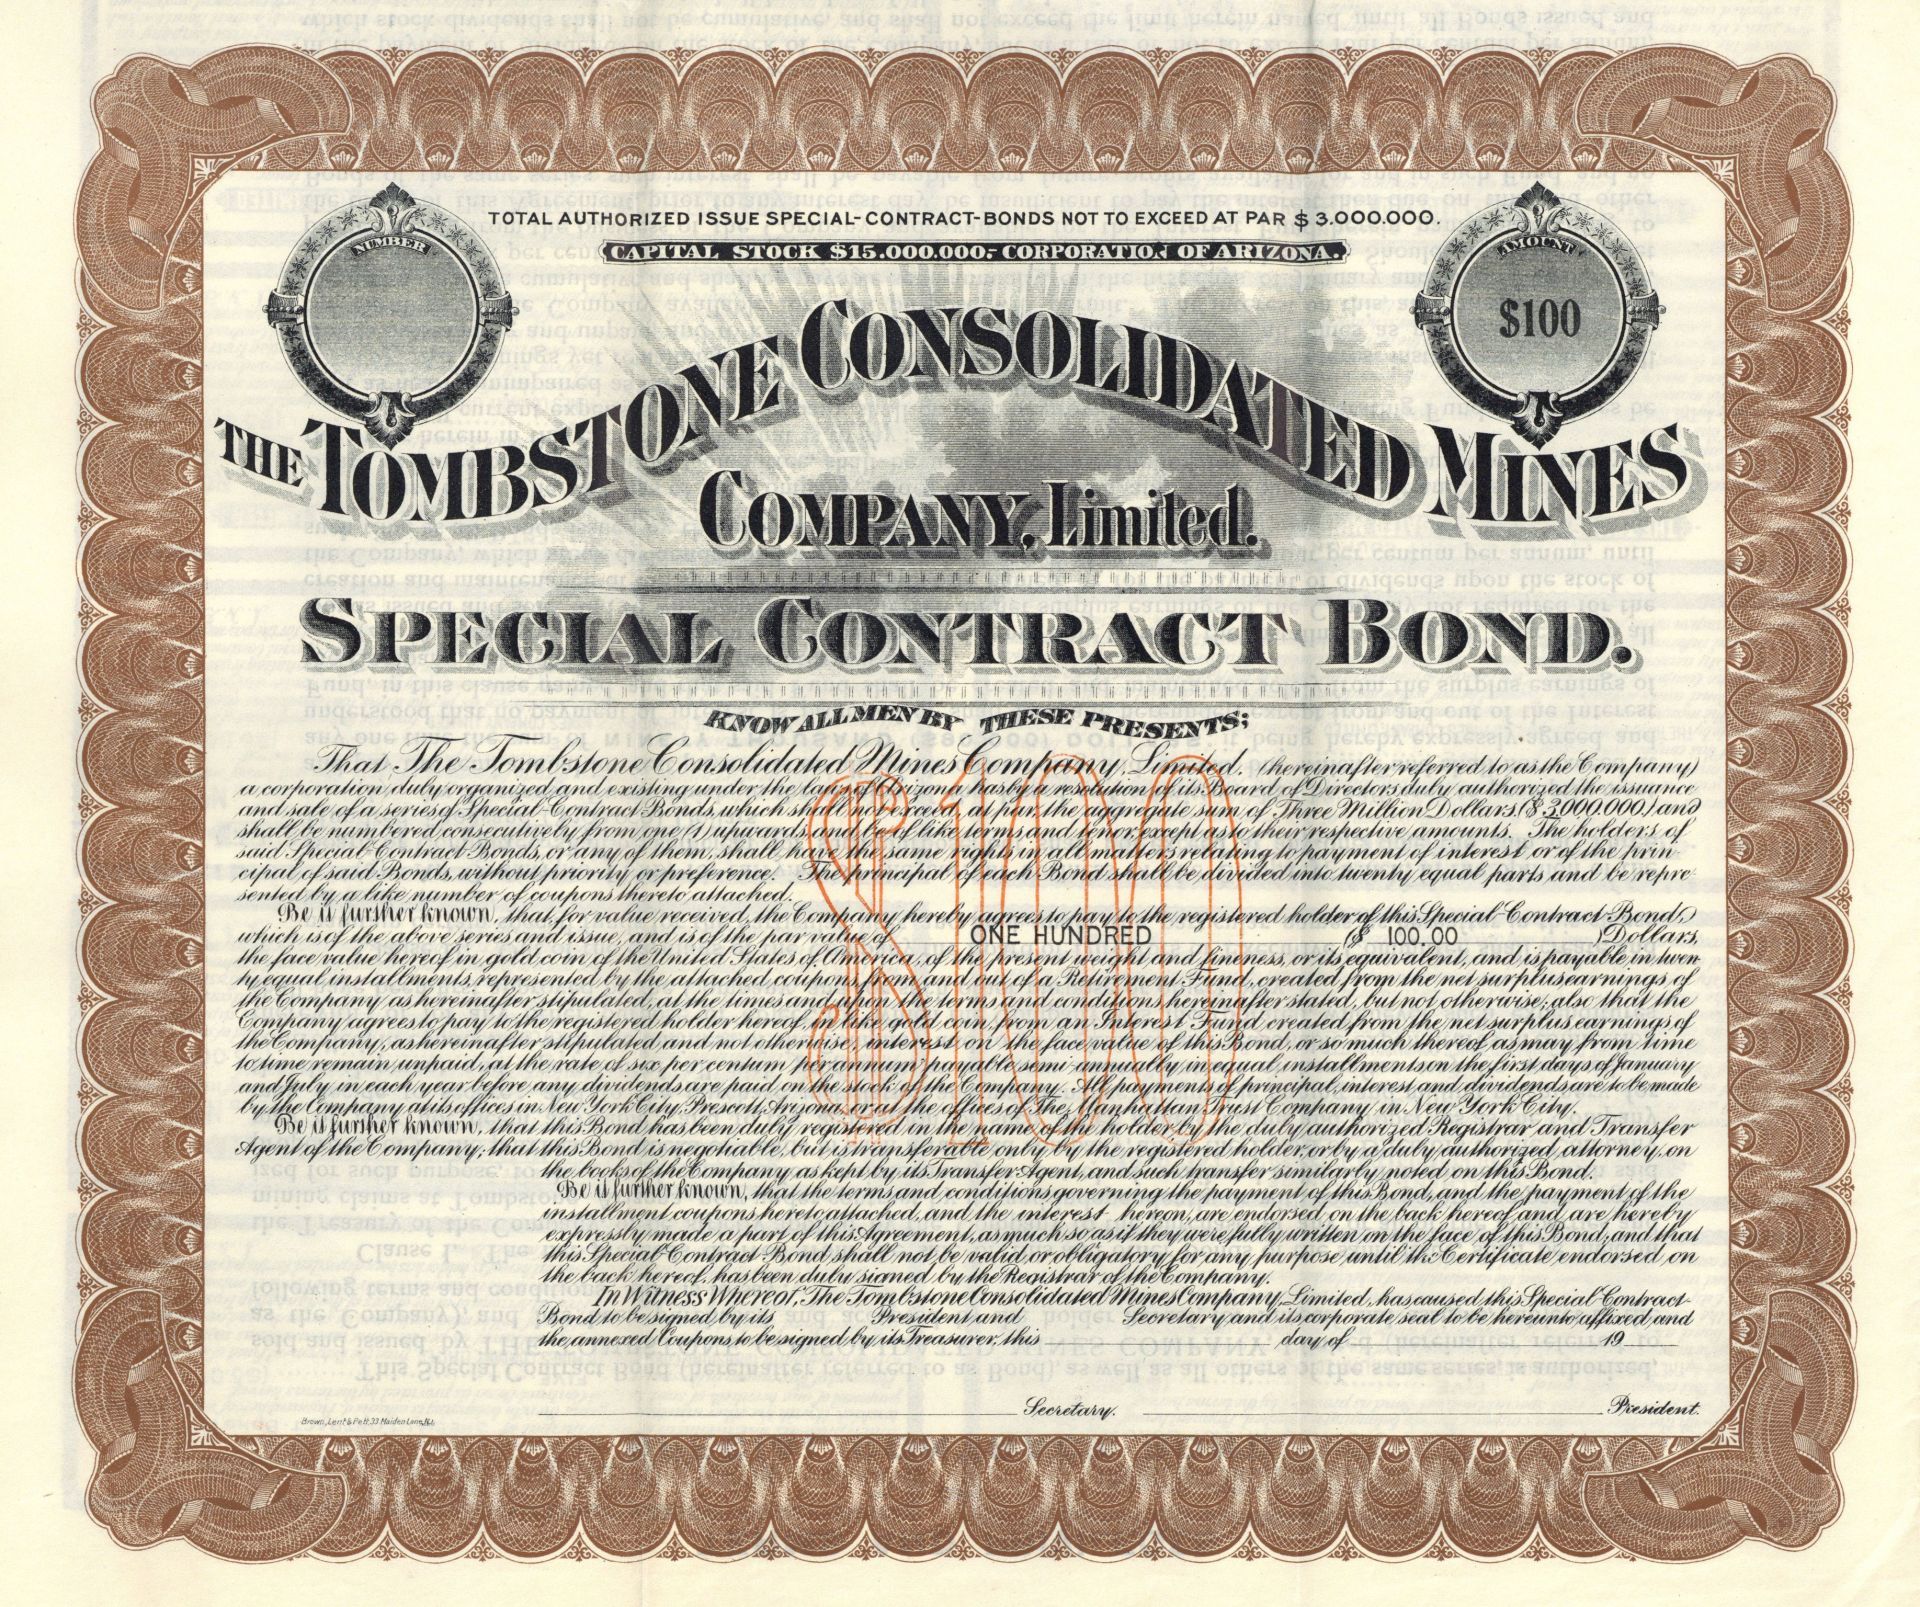 TOTAL AUTHORIZED ISSUE SPECIAL-CONTRACT-BONDS NOT TO EXCEED AT PAR $3.000.000.
CAPITAL STOCK $15.000.000.- CORPORATION OF ARIZONA.
NUMBER
AMOUNT
$100
THE TOMBSTONE CONSOLIDATED MINES
COMPANY, Limited.
SPECIAL CONTRACT BOND.
KNOW ALL MEN BY THESE PRESENTS;
$100
That The Tombstone Consolidated Mines Company, Limited, (hereinafter referred to as the Company)
a corporation duly organized and existing under the laws of Arizona has by a resolution of its Board of Directors duly authorized the issuance
and sale of a series of Special-Contract-Bonds, which shall not exceed, at par, the aggregate sum of Three Million Dollars, ($ 3,000,000.) and
shall be numbered consecutively from one (1) upwards, and be of like terms and tenor, except as to their respective amounts. The holders of
said Special-Contract-Bonds, or any of them, shall have the same rights in all matters relating to payment of interest or of the prin-
cipal of said Bonds, without priority or preference. The principal of each Bond shall be divided into twenty equal parts and be repre-
sented by a like number of coupons thereto attached.
Be it further known, that, for value received, the Company hereby agrees to pay to the registered holder of this Special-Contract-Bond,
which is of the above series and issue, and is of the par value of ONE HUNDRED ($ 100.00 ) Dollars,
the face value hereof in gold coin of the United States of America, of the present weight and fineness, or its equivalent, and is payable in twen-
ty equal installments, represented by the attached coupons, from and out of a Retirement Fund, created from the net surplus earnings of
the Company as hereinafter stipulated, at the times and upon the terms and conditions hereinafter stated, but not otherwise; also that the
Company agrees to pay to the registered holder hereof, in like gold coin, from an Interest Fund created from the net surplus earnings of
the Company, as hereinafter stipulated, and not otherwise, interest on the face value of this Bond, or so much thereof as may from time
to time remain unpaid, at the rate of six per centum per annum, payable semi-annually in equal installments on the first days of January
and July in each year before any dividends are paid on the stock of the Company. All payments of principal, interest and dividends are to be made
by the Company at its offices in New York City, Prescott, Arizona, or at the offices of The Manhattan Trust Company in New York City.
Be it further known, that this Bond has been duly registered in the name of the holder by the duly authorized Registrar and Transfer
Agent of the Company; that this Bond is negotiable, but is transferable only by the registered holder, or by a duly authorized attorney, on
the books of the Company as kept by its Transfer-Agent, and such transfer similarly noted on this Bond.
Be it further known, that the terms and conditions governing the payment of this Bond, and the payment of the
installment coupons hereto attached, and the interest hereon, are endorsed on the back hereof and are hereby
expressly made a part of this Agreement, as much so as if they were fully written on the face of this Bond; and that
this Special-Contract-Bond shall not be valid or obligatory for any purpose until the Certificate endorsed on
the back hereof, has been duly signed by the Registrar of the Company.
In Witness Whereof, The Tombstone Consolidated Mines Company, Limited, has caused this Special-Contract-
Bond to be signed by its President and Secretary and its corporate seal to be hereunto affixed, and
the annexed Coupons to be signed by its Treasurer, this day of 19
Secretary. President.
Brown, Lent & Pett, 33 Maiden Lane, N.Y.